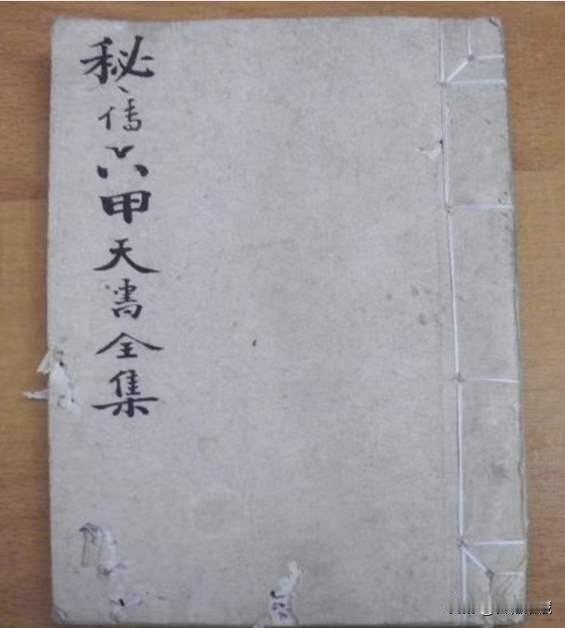 秘传六甲天書全集